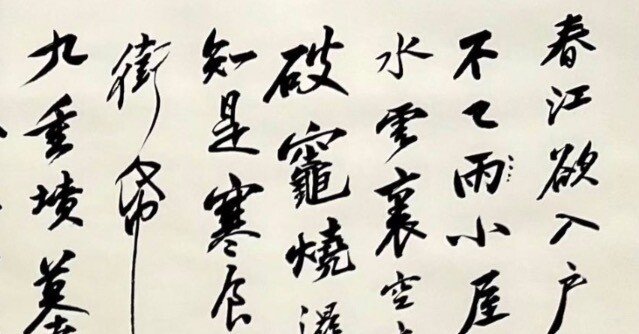 春江欲入戶
不已雨小屋
水雲裏空
破竈燒濕
知是寒食
銜帋
九重墳墓